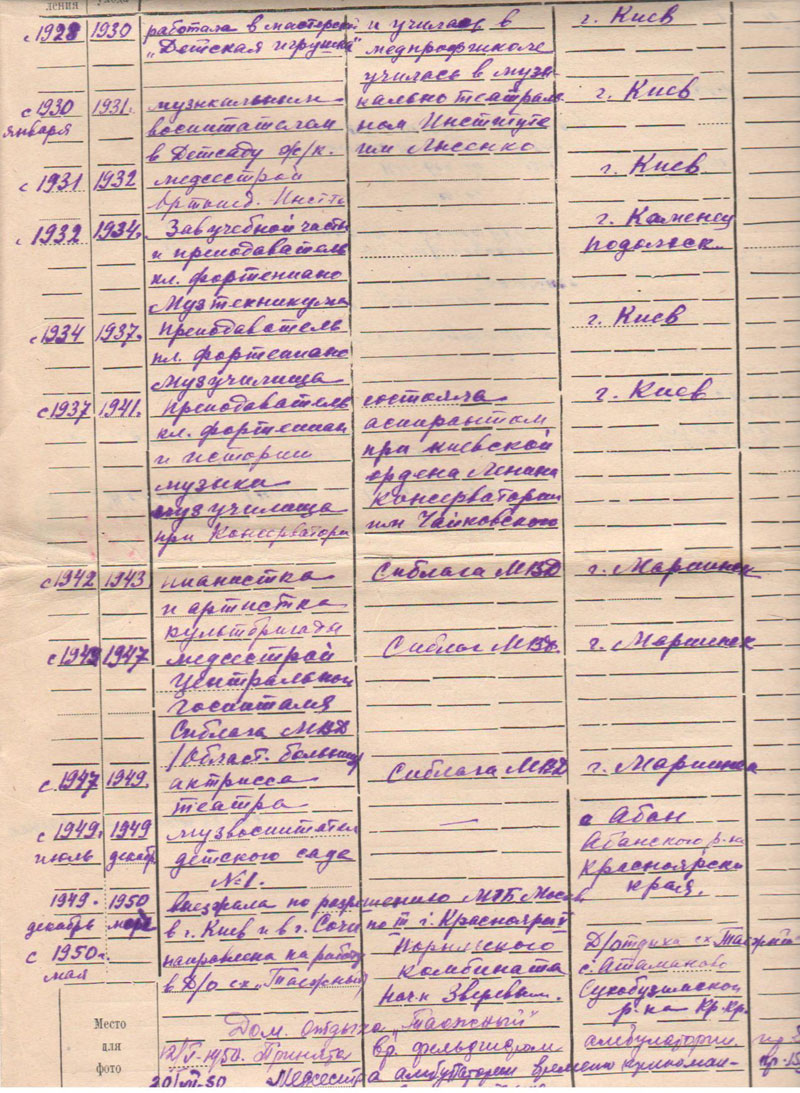 ления
с 1928 1930 работала в мастерской и училась в г. Киев
„Детская игрушка" медпрофшколе
училась в музы-
с 1930 1931. музыкальным кально театраль г. Киев
января воспитателем ном Институте
в Детсаду ж/к. им Лысенко
с 1931 1932 медсестрой г. Киев
Ортопед. Инст.
с 1932 1934. Зав учебной часть г. Каменец
и преподаватель Подольск
кл. фортепиано
Музтехникума
с 1934 1937. преподаватель г. Киев
кл. фортепиано
музучилища
с 1937 1941. преподаватель состояла г. Киев
кл. фортепиан аспирантом
и истории при Киевской
музыки ордена Ленина
музучилища Консерватории
при Консерватори им Чайковского
с 1942 1943 пианистка Сиблага МВД г. Мариинск
и артистка
культбригады
с 1943 1947 медсестрой Сиблаг МВД. г. Мариинск
Центральной
госпиталя
Сиблага МВД
/Област. больниц/
с 1947 1949. актрисса Сиблага МВД г. Мариинск
театра
с 1949. 1949 музвоспитател — с Абан
июль декабр детского сада Абанского р-на
№ 1. Красноярск
края.
1949. 1950 выезжала по разрешению МГБ Москв
декабрь в г. Киев и в г. Сочи по г. Красноярск
с 1950. направлена на работу Норильского Д/отдыха сх Таежный
мая в Д/о сх „Таежный" комбината с. Атаманово
нач-к Зверевым. Сухобузимской
р-на Кр. кр.
Место
для
фото
Дом отдыха „Таежный"
12/V-1950. Принята вр. фельдшером амбулатории
20/VII-50 Медсестра амбулатории временно прикоман-